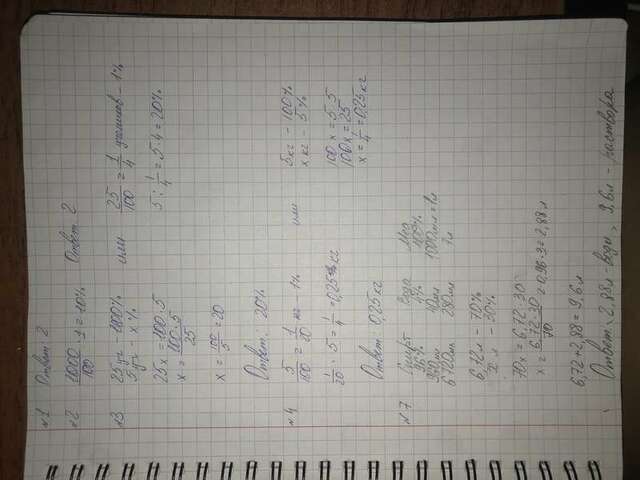 №1 Ответ: 2
№2 2000/100 · 1 = 20% Ответ: 2
№3 25уч – 100% или 25/100 = 1/4 учеников – 1%
5уч – x%
25x = 100·5 5 : 1/4 = 5·4 = 20%
x = 100·5/25
x = 100/5 = 20
Ответ: 20%
№4 5/100 = 1/20 кг – 1% или 5кг – 100%
x кг – 5%
1/20 · 5 = 1/4 = 0,25 кг 100x = 5·5
100x = 25
x = 1/4 = 0,25кг
Ответ: 0,25кг
№7 Спирт Вода
96% 4% 100%
960мл 40мл 1000мл = 1л
6720мл 280мл 7л
6,72л – 70%
x л – 30%
70x = 6,72·30
x = 6,72·30/70 = 0,96·3 = 2,88л
6,72+2,88 = 9,6л
Ответ: 2,88л – воды, 9,6л – раствора